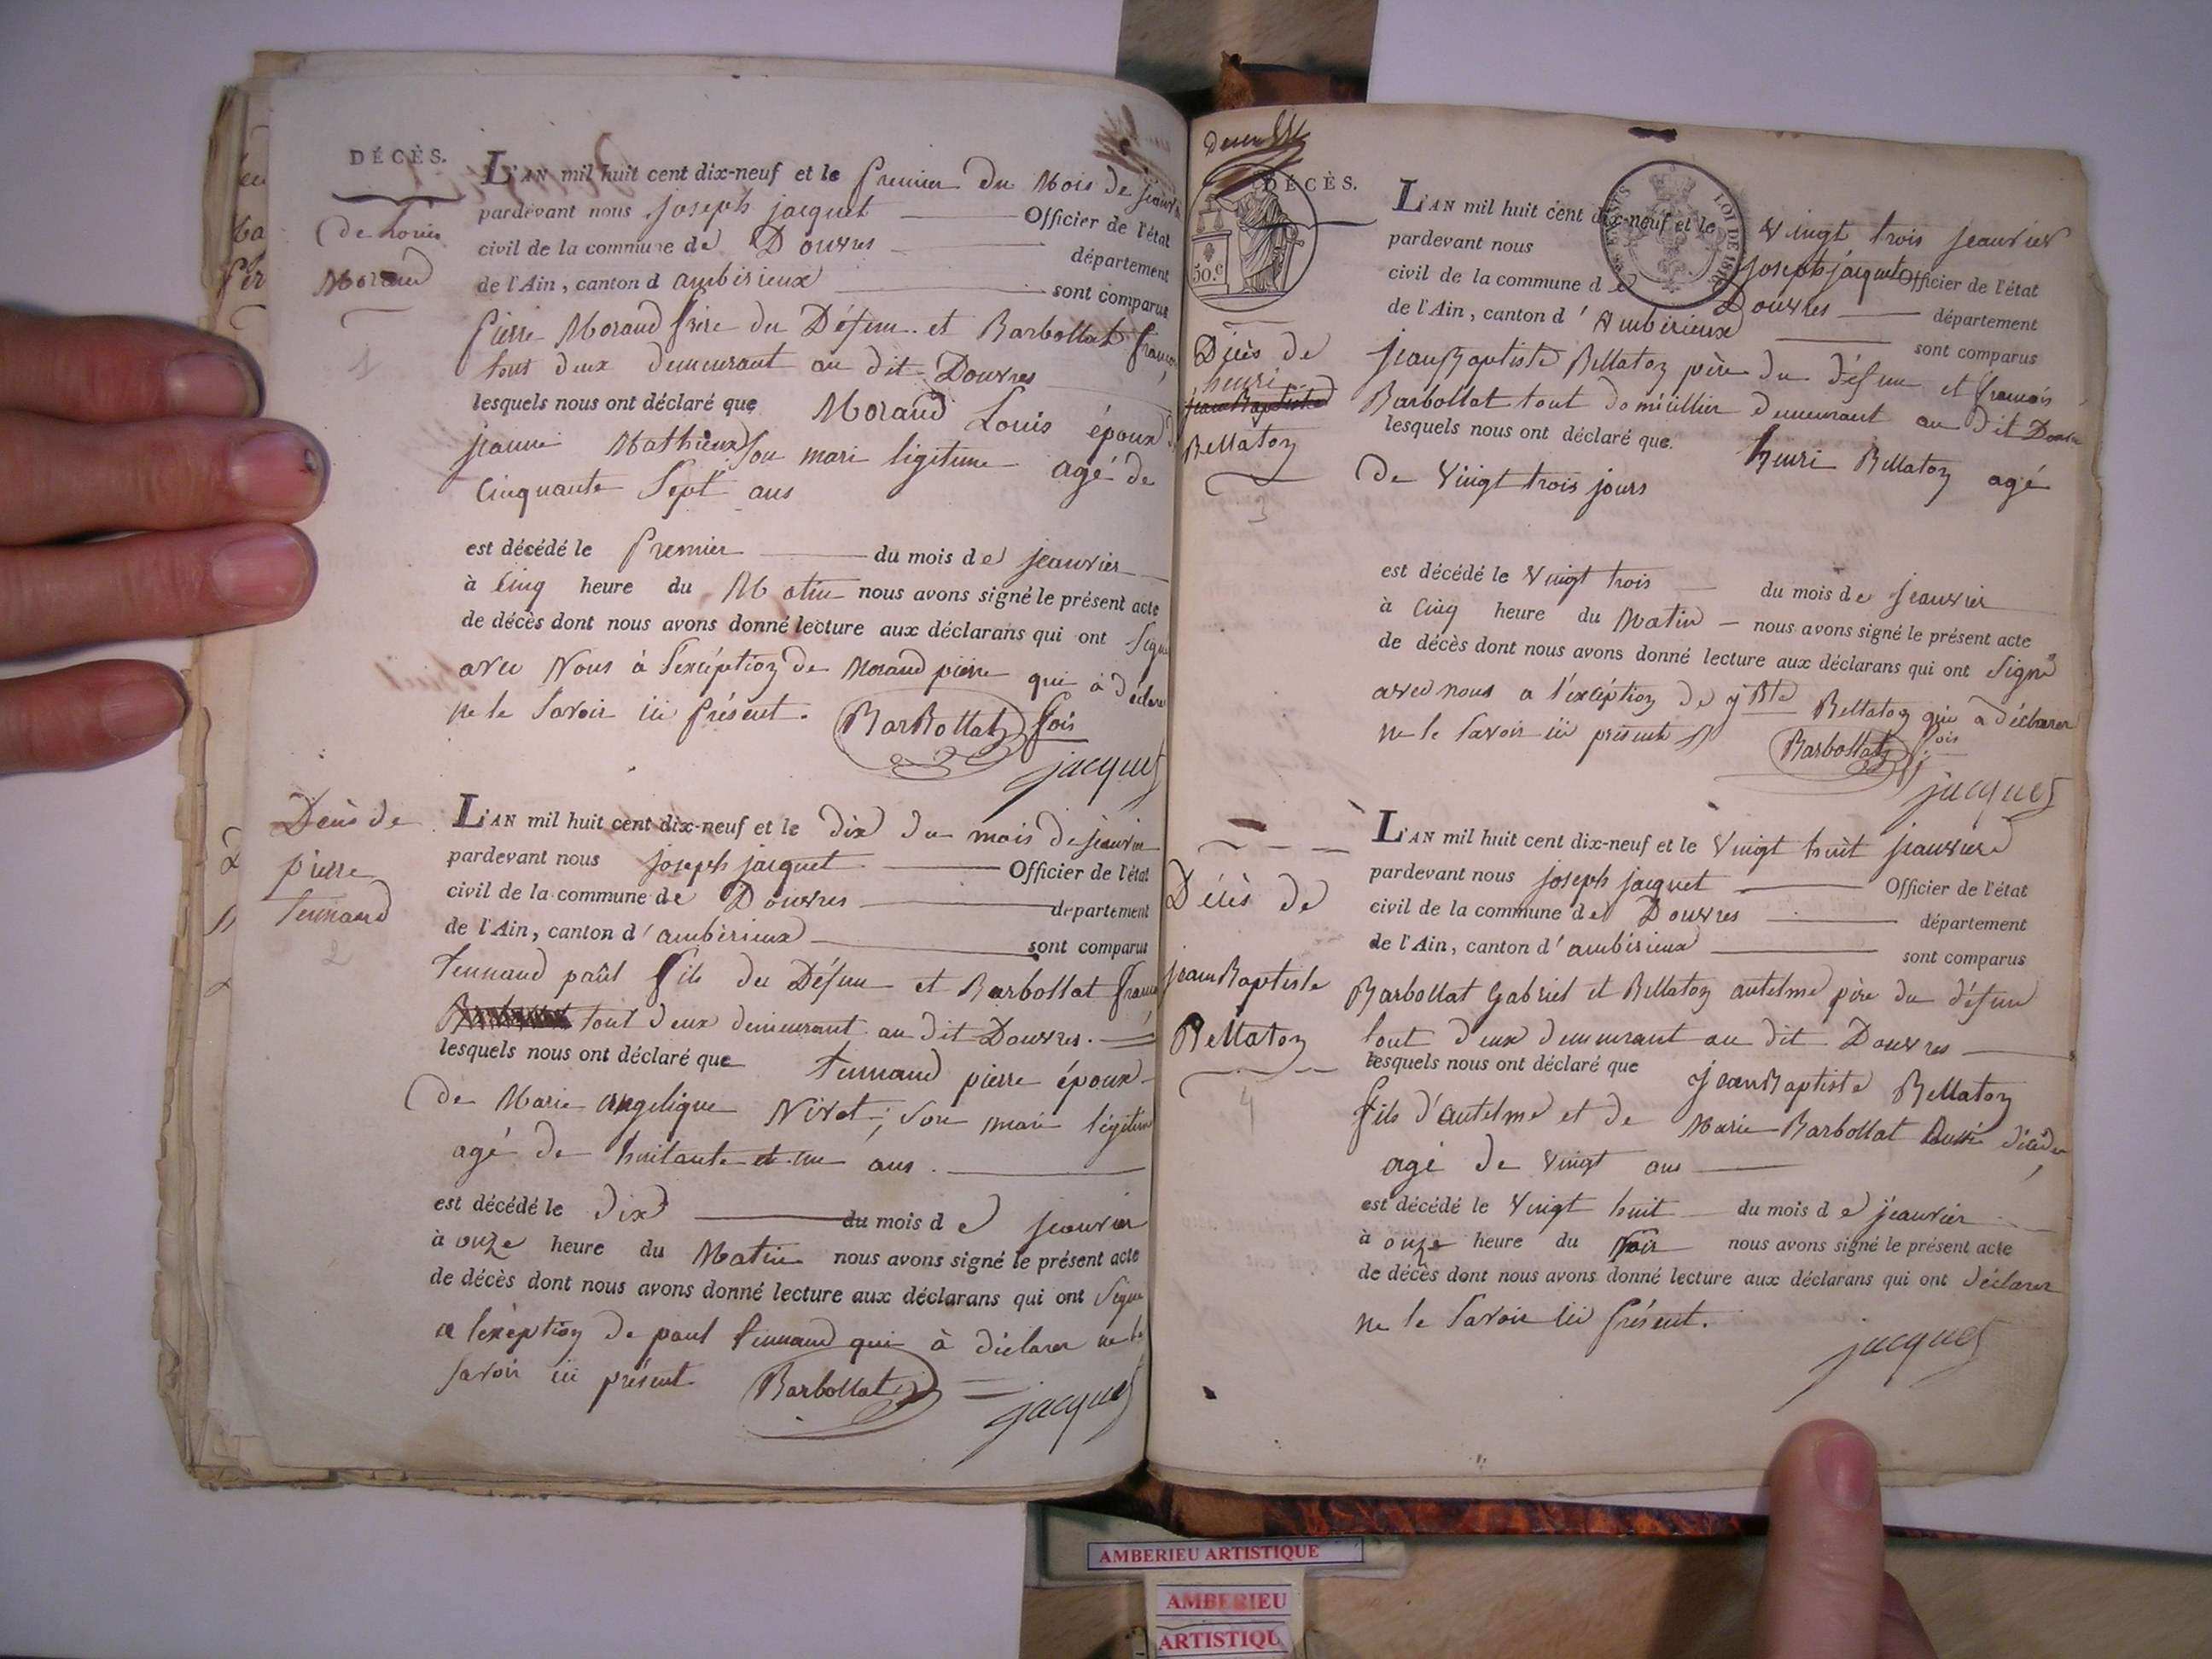 DÉCÈS.
de Louis
Morand
1
L'AN mil huit cent dix-neuf et le Premier du Mois de jeanvier
pardevant nous joseph jacquet Officier de l'état
civil de la commune de Douvres département
de l'Ain, canton d ambérieux sont comparus
Pierre Morand frère du Défun et Barbollat françois
tout deux demeurant au dit Douvres
lesquels nous ont déclaré que Morand Louis époux de
jeanne Mathieux son mari ligitime agé de
Cinquante Sept ans
est décédé le Premier du mois de jeanvier
à Cinq heure du Matin nous avons signé le présent acte
de décès dont nous avons donné lecture aux déclarans qui ont Signé
avec Nous à l'exception de Morand pierre qui à déclaré
ne le Savoir ici Présent. BarBollat fois
jacquet
Décès de
pierre
tennand
2
L'AN mil huit cent dix-neuf et le dix du mois de jeanvier
pardevant nous joseph jacquet Officier de l'état
civil de la commune de Douvres département
de l'Ain, canton d'ambérieux sont comparus
tennand paul fils du Défun et Barbollat françois
tout deux demeurant au dit Douvres.
lesquels nous ont déclaré que tennand pierre époux
de Marie angelique Nivet; son mari légitime
agé de huitante et un ans.
est décédé le dix du mois de jeanvier
à onze heure du Matin nous avons signé le présent acte
de décès dont nous avons donné lecture aux déclarans qui ont Signé
a l'exéption de paul tennand qui à déclarer ne le
savoir ici présent Barbollat
jacquet
DÉCÈS.
50.c
LOI DE 1816
Décès de
henri
jeanBaptiste
Bellaton
3
L'AN mil huit cent dix-neuf et le Vingt trois jeanvier
pardevant nous joseph jacquet Officier de l'état
civil de la commune de Douvres département
de l'Ain, canton d'Ambérieux sont comparus
jeanBaptiste Bellaton père du défun et françois
Barbollat tout domicillier demeurant au dit Douvres
lesquels nous ont déclaré que henri Bellaton agé
de Vingt trois jours
est décédé le Vingt trois du mois de jeanvier
à Cinq heure du Matin nous avons signé le présent acte
de décès dont nous avons donné lecture aux déclarans qui ont Signé
avec nous a l'excéption de j Bte Bellaton qui a déclarer
ne le Savoir ici présent Barbollat fois
jacquet
Décès de
jeanBaptiste
Bellaton
4
L'AN mil huit cent dix-neuf et le Vingt huit jeanvier
pardevant nous joseph jacquet Officier de l'état
civil de la commune de Douvres département
de l'Ain, canton d'ambérieux sont comparus
Barbollat Gabriel et Bellaton antelme père du défun
tout deux demeurant au dit Douvres
lesquels nous ont déclaré que jeanBaptiste Bellaton
fils d'antelme et de Marie Barbollat
agé de Vingt ans
est décédé le Vingt huit du mois de jeanvier
à onze heure du Soir nous avons signé le présent acte
de décès dont nous avons donné lecture aux déclarans qui ont déclarer
ne le Savoir ici Présent.
jacquet
AMBERIEU ARTISTIQUE
AMBERIEU
ARTISTIQU